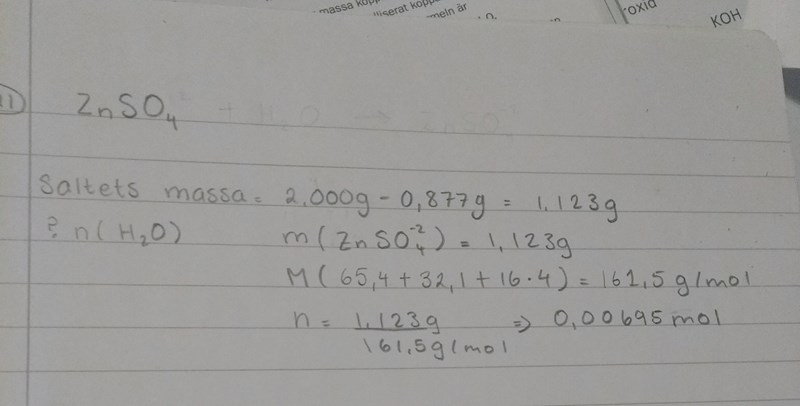 massa
iserat
meln är
n.
oxid
KOH
11) ZnSO₄
Saltets massa = 2,000g - 0,877g = 1,123g
? n(H₂O) m(ZnSO₄⁻²) = 1,123g
M(65,4 + 32,1 + 16·4) = 161,5 g/mol
n = 1,123g / 161,5g/mol ⇒ 0,00695 mol